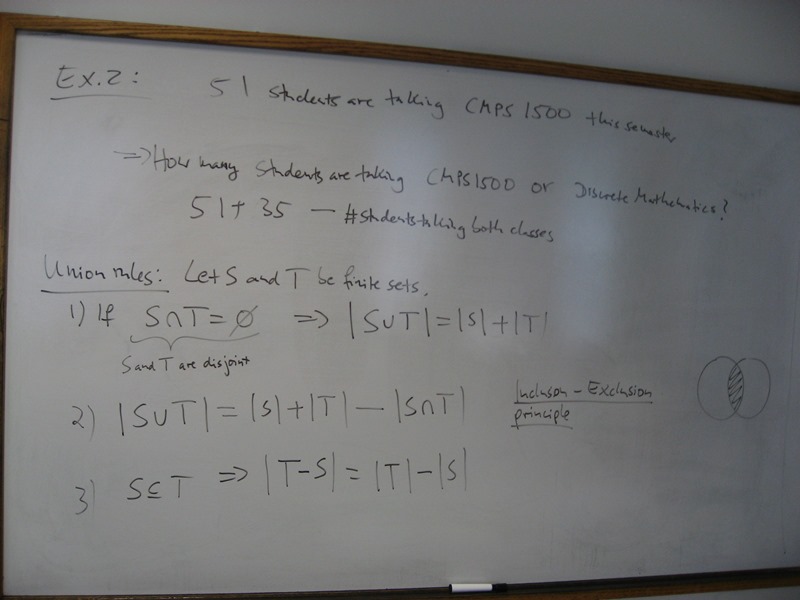 Ex.2: 51 students are taking CMPS 1500 this semester
=> How many students are taking CMPS1500 or Discrete Mathematics?
51+ 35 — #students taking both classes
Union rules: Let S and T be finite sets.
1) If S∩T = ∅ => |S∪T| = |S| + |T|
S and T are disjoint
2) |S∪T| = |S| + |T| — |S∩T|
Inclusion - Exclusion
principle
3) S⊆T => |T-S| = |T| - |S|